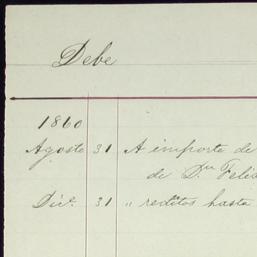 Debe
1860
Agosto 31 A importe de
de Dn Feli
Dice. 31 " reditos hasta